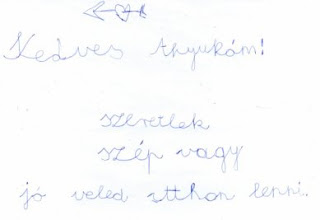 Kedves Anyukám!
szeretlek
szép vagy
jó veled itthon lenni.